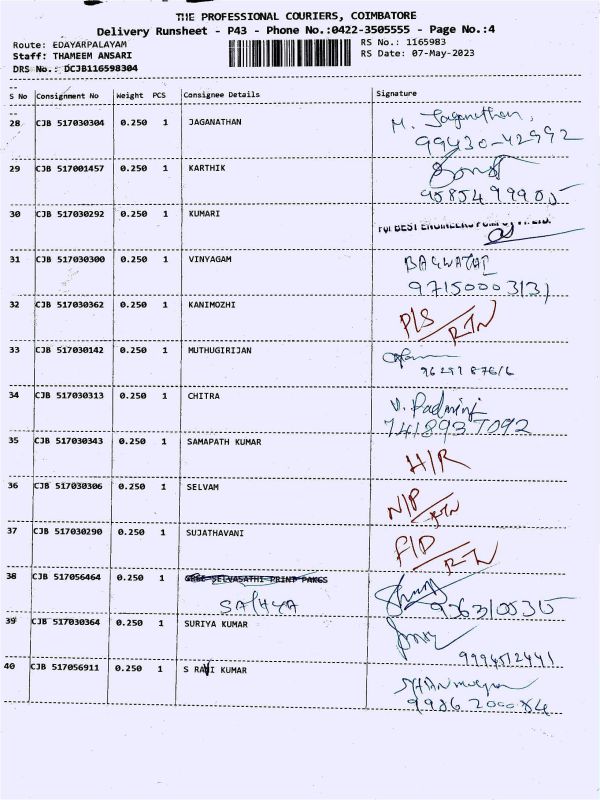 THE PROFESSIONAL COURIERS, COIMBATORE
Delivery Runsheet - P43 - Phone No.:0422-3505555 - Page No.:4
Route: EDAYARPALAYAM RS No.: 1165983
Staff: THAMEEM ANSARI RS Date: 07-May-2023
DRS No.: DCJB116598304
S No Consignment No Weight PCS Consignee Details Signature
28 CJB 517030304 0.250 1 JAGANATHAN M. Jaganathan,
99430-42992
29 CJB 517001457 0.250 1 KARTHIK
30 CJB 517030292 0.250 1 KUMARI
31 CJB 517030300 0.250 1 VINYAGAM
97150003131
32 CJB 517030362 0.250 1 KANIMOZHI P/S
RTN
33 CJB 517030142 0.250 1 MUTHUGIRIJAN
34 CJB 517030313 0.250 1 CHITRA V. Padmini
7418937092
35 CJB 517030343 0.250 1 SAMAPATH KUMAR H/R
36 CJB 517030306 0.250 1 SELVAM N/P
RTN
37 CJB 517030290 0.250 1 SUJATHAVANI
38 CJB 517056464 0.250 1 SELVASATHI PRINT PAKGS
SATHYA
39 CJB 517030364 0.250 1 SURIYA KUMAR
9994512441
40 CJB 517056911 0.250 1 S RAVI KUMAR